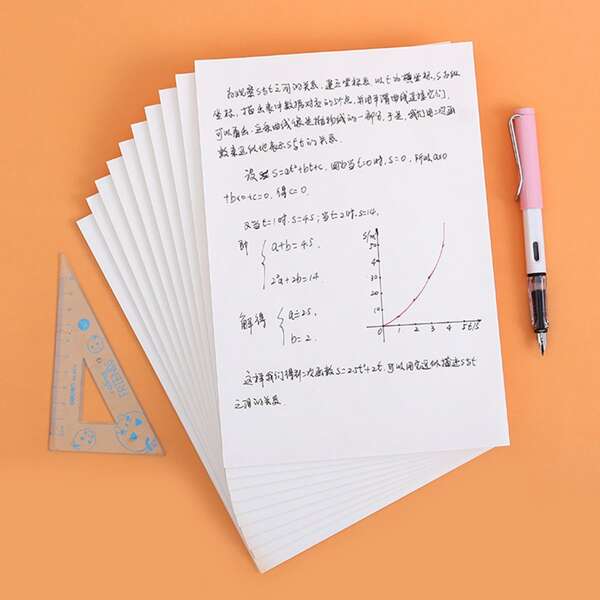 为观察s与t之间的关系，建立坐标系，以t为横坐标，s为纵
坐标，描出表中数据对应的5个点，并用平滑曲线连接它们，
可以看出，这条曲线像是抛物线的一部分，于是，我们用二次函
数来近似地表示s与t的关系．
设 s=at²+bt+c，因为当t=0时，s=0，所以a×0
+b×0+c=0，得c=0
又当t=1时，s=4.5；当t=2时，s=14，
即
a+b=4.5，
2²a+2b=14
解得
a=2.5，
b=2．
s/m
50
40
30
20
10
0 1 2 3 4 5 t/s
这样我们得到二次函数s=2.5t²+2t，可以用它近似描述s与t
之间的关系．